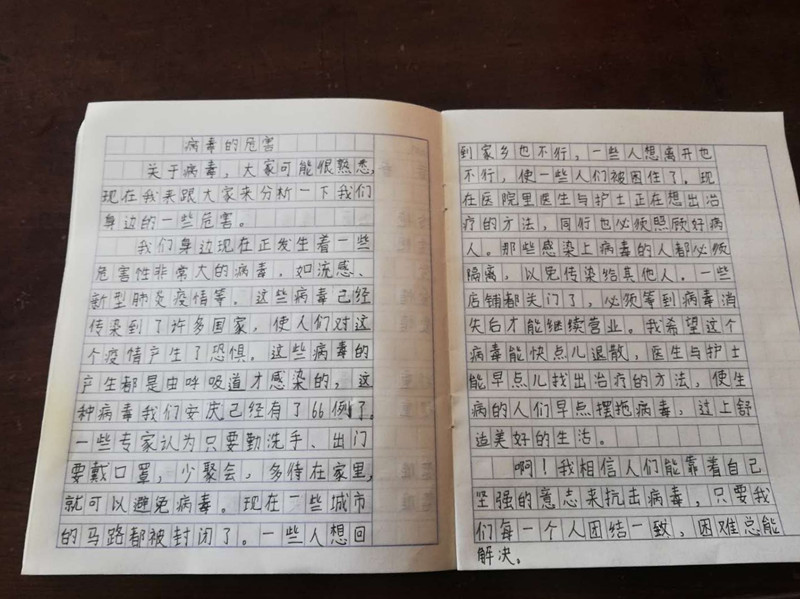 病毒的危害
关于病毒，大家可能很熟悉，
现在我来跟大家来分析一下我们
身边的一些危害。
我们身边现在正发生着一些
危害性非常大的病毒，如流感、
新型肺炎疫情等，这些病毒已经
传染到了许多国家，使人们对这
个疫情产生了恐惧，这些病毒的
产生都是由呼吸道才感染的，这
种病毒我们安庆已经有了66例了，
一些专家认为只要勤洗手、出门
要戴口罩，少聚会，多待在家里，
就可以避免病毒。现在一些城市
的马路都被封闭了。一些人想回
到家乡也不行，一些人想离开也
不行，使一些人们被困住了。现
在医院里医生与护士正在想出治
疗的方法，同行也必须照顾好病
人。那些感染上病毒的人都必须
隔离，以免传染给其他人。一些
店铺都关门了，必须等到病毒消
失后才能继续营业。我希望这个
病毒能快点儿退散，医生与护士
能早点儿找出治疗的方法，使生
病的人们早点摆拖病毒，过上舒
适美好的生活。
啊！我相信人们能靠着自己
坚强的意志来抗击病毒，只要我
们每一个人团结一致，困难总能
解决。